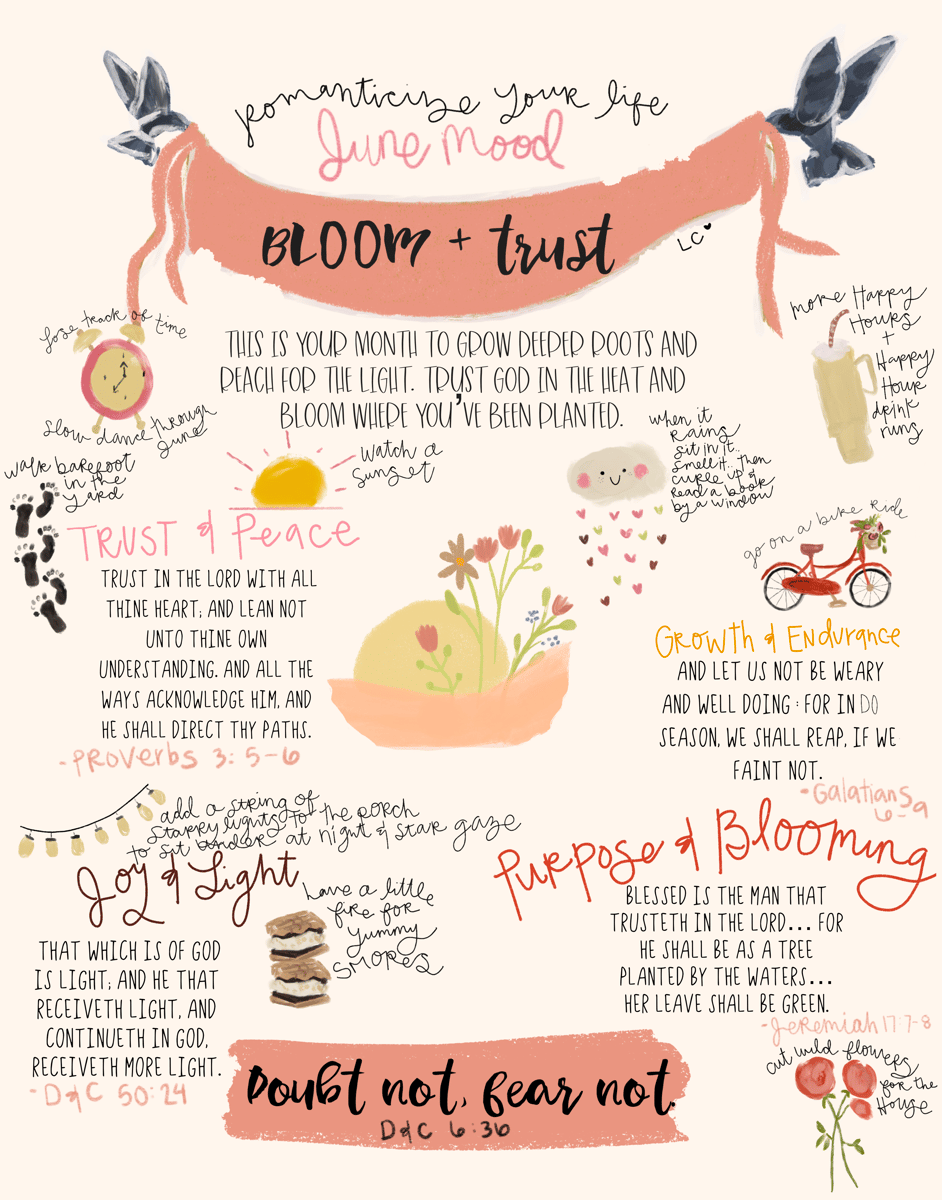 romanticize your life
June Mood
BLOOM + trust
LC
THIS IS YOUR MONTH TO GROW DEEPER ROOTS AND
REACH FOR THE LIGHT. TRUST GOD IN THE HEAT AND
BLOOM WHERE YOU'VE BEEN PLANTED.
lose track of time
slow dance through
June
more Happy
Hours
+
Happy
Hour
drink
runs
walk barefoot
in the
yard
watch a
sunset
when it
rains
sit in it..
smell it. Then
curle up &
read a book
by a window
go on a bike ride
TRUST & Peace
TRUST IN THE LORD WITH ALL
THINE HEART; AND LEAN NOT
UNTO THINE OWN
UNDERSTANDING. AND ALL THE
WAYS ACKNOWLEDGE HIM, AND
HE SHALL DIRECT THY PATHS.
-Proverbs 3:5-6
Growth & Endurance
AND LET US NOT BE WEARY
AND WELL DOING : FOR IN DO
SEASON, WE SHALL REAP, IF WE
FAINT NOT.
-Galatians
6-9
add a string of
starry lights to the porch
to sit under at night & star gaze
Joy & Light
THAT WHICH IS OF GOD
IS LIGHT; AND HE THAT
RECEIVETH LIGHT, AND
CONTINUETH IN GOD,
RECEIVETH MORE LIGHT.
-D&C 50:24
have a little
fire for
yummy
SMORES
Purpose & Blooming
BLESSED IS THE MAN THAT
TRUSTETH IN THE LORD... FOR
HE SHALL BE AS A TREE
PLANTED BY THE WATERS...
HER LEAVE SHALL BE GREEN.
-Jeremiah 17:7-8
cut wild flowers
for the
House
Doubt not, fear not.
D&C 6:36